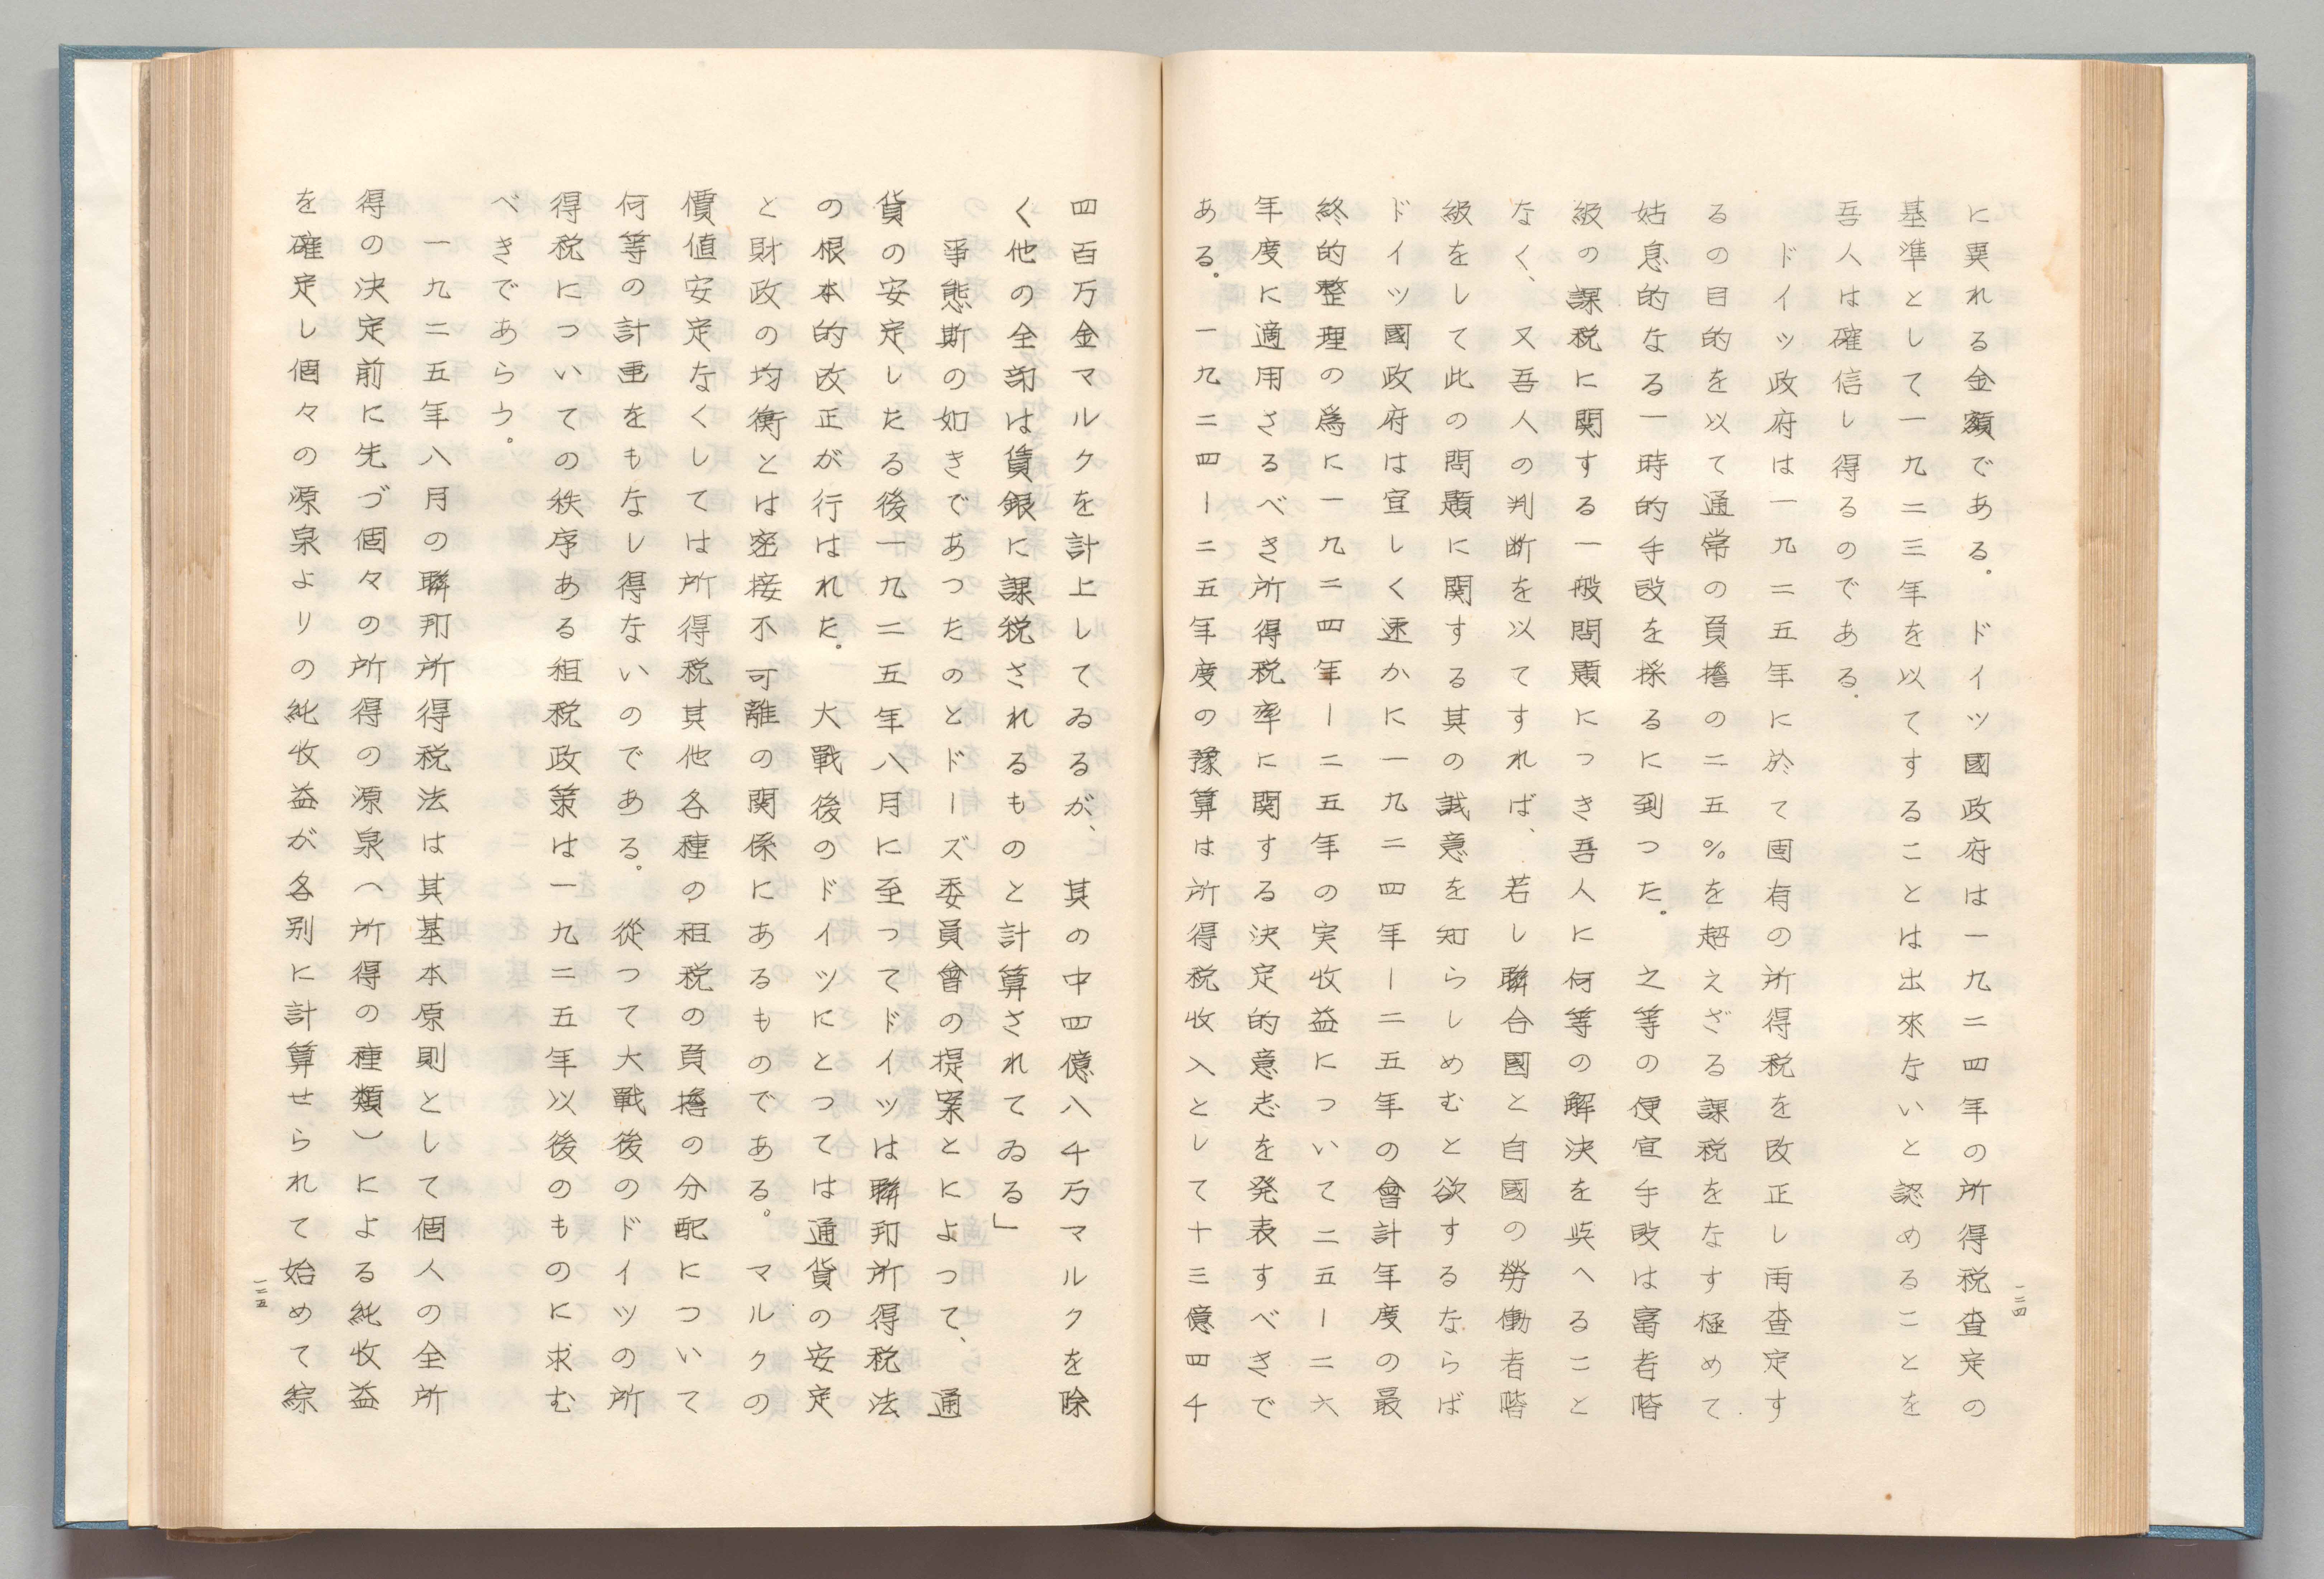 に異れる金額である。ドイツ國政府は一九二四年の所得税査定の
基準として一九二三年を以てすることは出來ないと認めることを
吾人は確信し得るのである。
ドイツ政府は一九二五年に於て固有の所得税を改正し再査定す
るの目的を以て通常の負擔の二五%を超えざる課税をなす極めて
姑息的なる一時的手段を採るに到つた。之等の便宜手段は富者階
級の課税に関する一般問題につき吾人に何等の解決を與へること
なく、又吾人の判断を以てすれば、若し聯合國と自國の勞働者階
級をして此の問題に関する其の誠意を知らしめむと欲するならば
ドイツ國政府は宜しく速かに一九二四年ー二五年の會計年度の最
終的整理の爲に一九二四年ー二五年の実收益について二五ー二六
年度に適用さるべき所得税率に関する決定的意志を発表すべきで
ある。一九二四ー二五年度の豫算は所得税收入として十三億四千
一二四
四百万金マルクを計上してゐるが、其の中四億八千万マルクを除
く他の全部は賃銀に課税されるものと計算されてゐる」
事態斯の如きであつたのとドーズ委員會の提案とによつて、通
貨の安定したる後一九二五年八月に至つてドイツは聯邦所得税法
の根本的改正が行はれた。大戰後のドイツにとつては通貨の安定
と財政の均衡とは密接不可離の関係にあるものである。マルクの
價値安定なくしては所得税其他各種の租税の負擔の分配について
何等の計画をもなし得ないのである。從つて大戰後のドイツの所
得税についての秩序ある租税政策は一九二五年以後のものに求む
べきであらう。
一九二五年八月の聯邦所得税法は其基本原則として個人の全所
得の決定前に先づ個々の所得の源泉（所得の種類）による純收益
を確定し個々の源泉よりの純收益が各別に計算せられて始めて綜
一二五